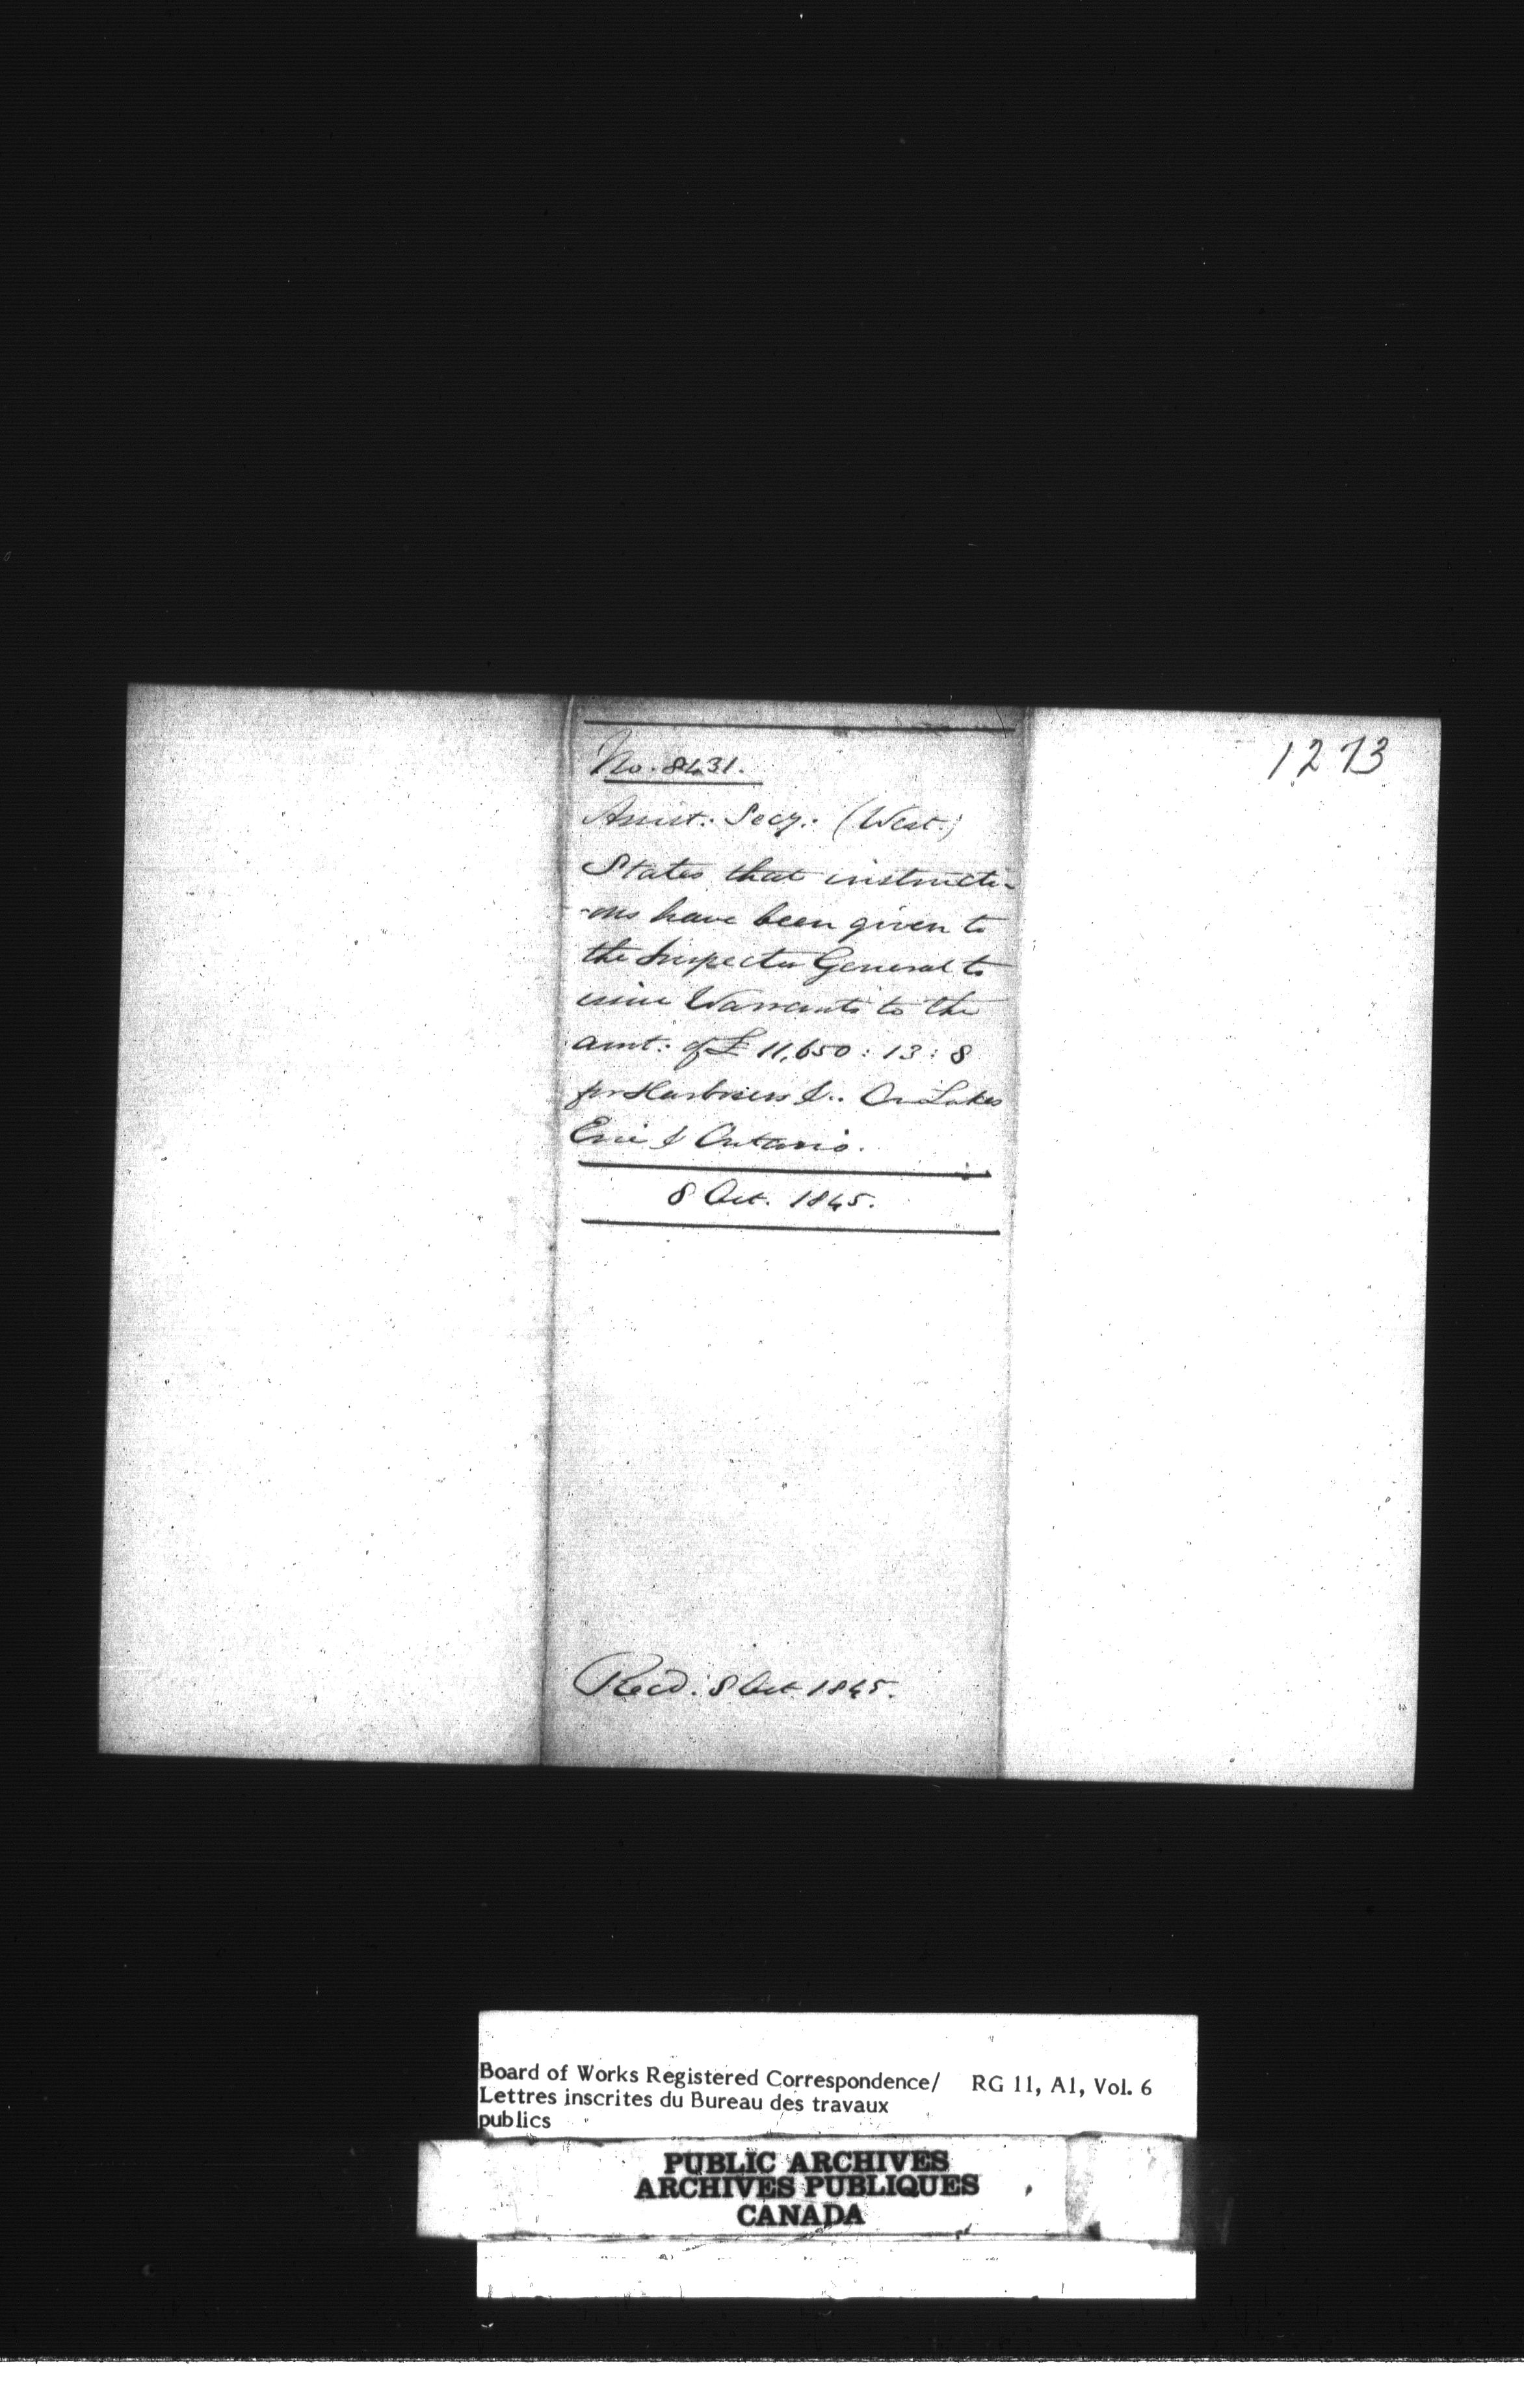 1273
No. 8431.
Assist. Secy. (West.)
States that instructi-
-ons have been given to
the Inspector General to
issue Warrants to the
amt. of £ 11,650 : 13 : 8
for Harbours &c. On Lakes
Erie & Ontario.
8 Oct. 1845.
Recd. 8 Oct. 1845.
Board of Works Registered Correspondence/ RG 11, A1, Vol. 6
Lettres inscrites du Bureau des travaux
publics
PUBLIC ARCHIVES
ARCHIVES PUBLIQUES
CANADA